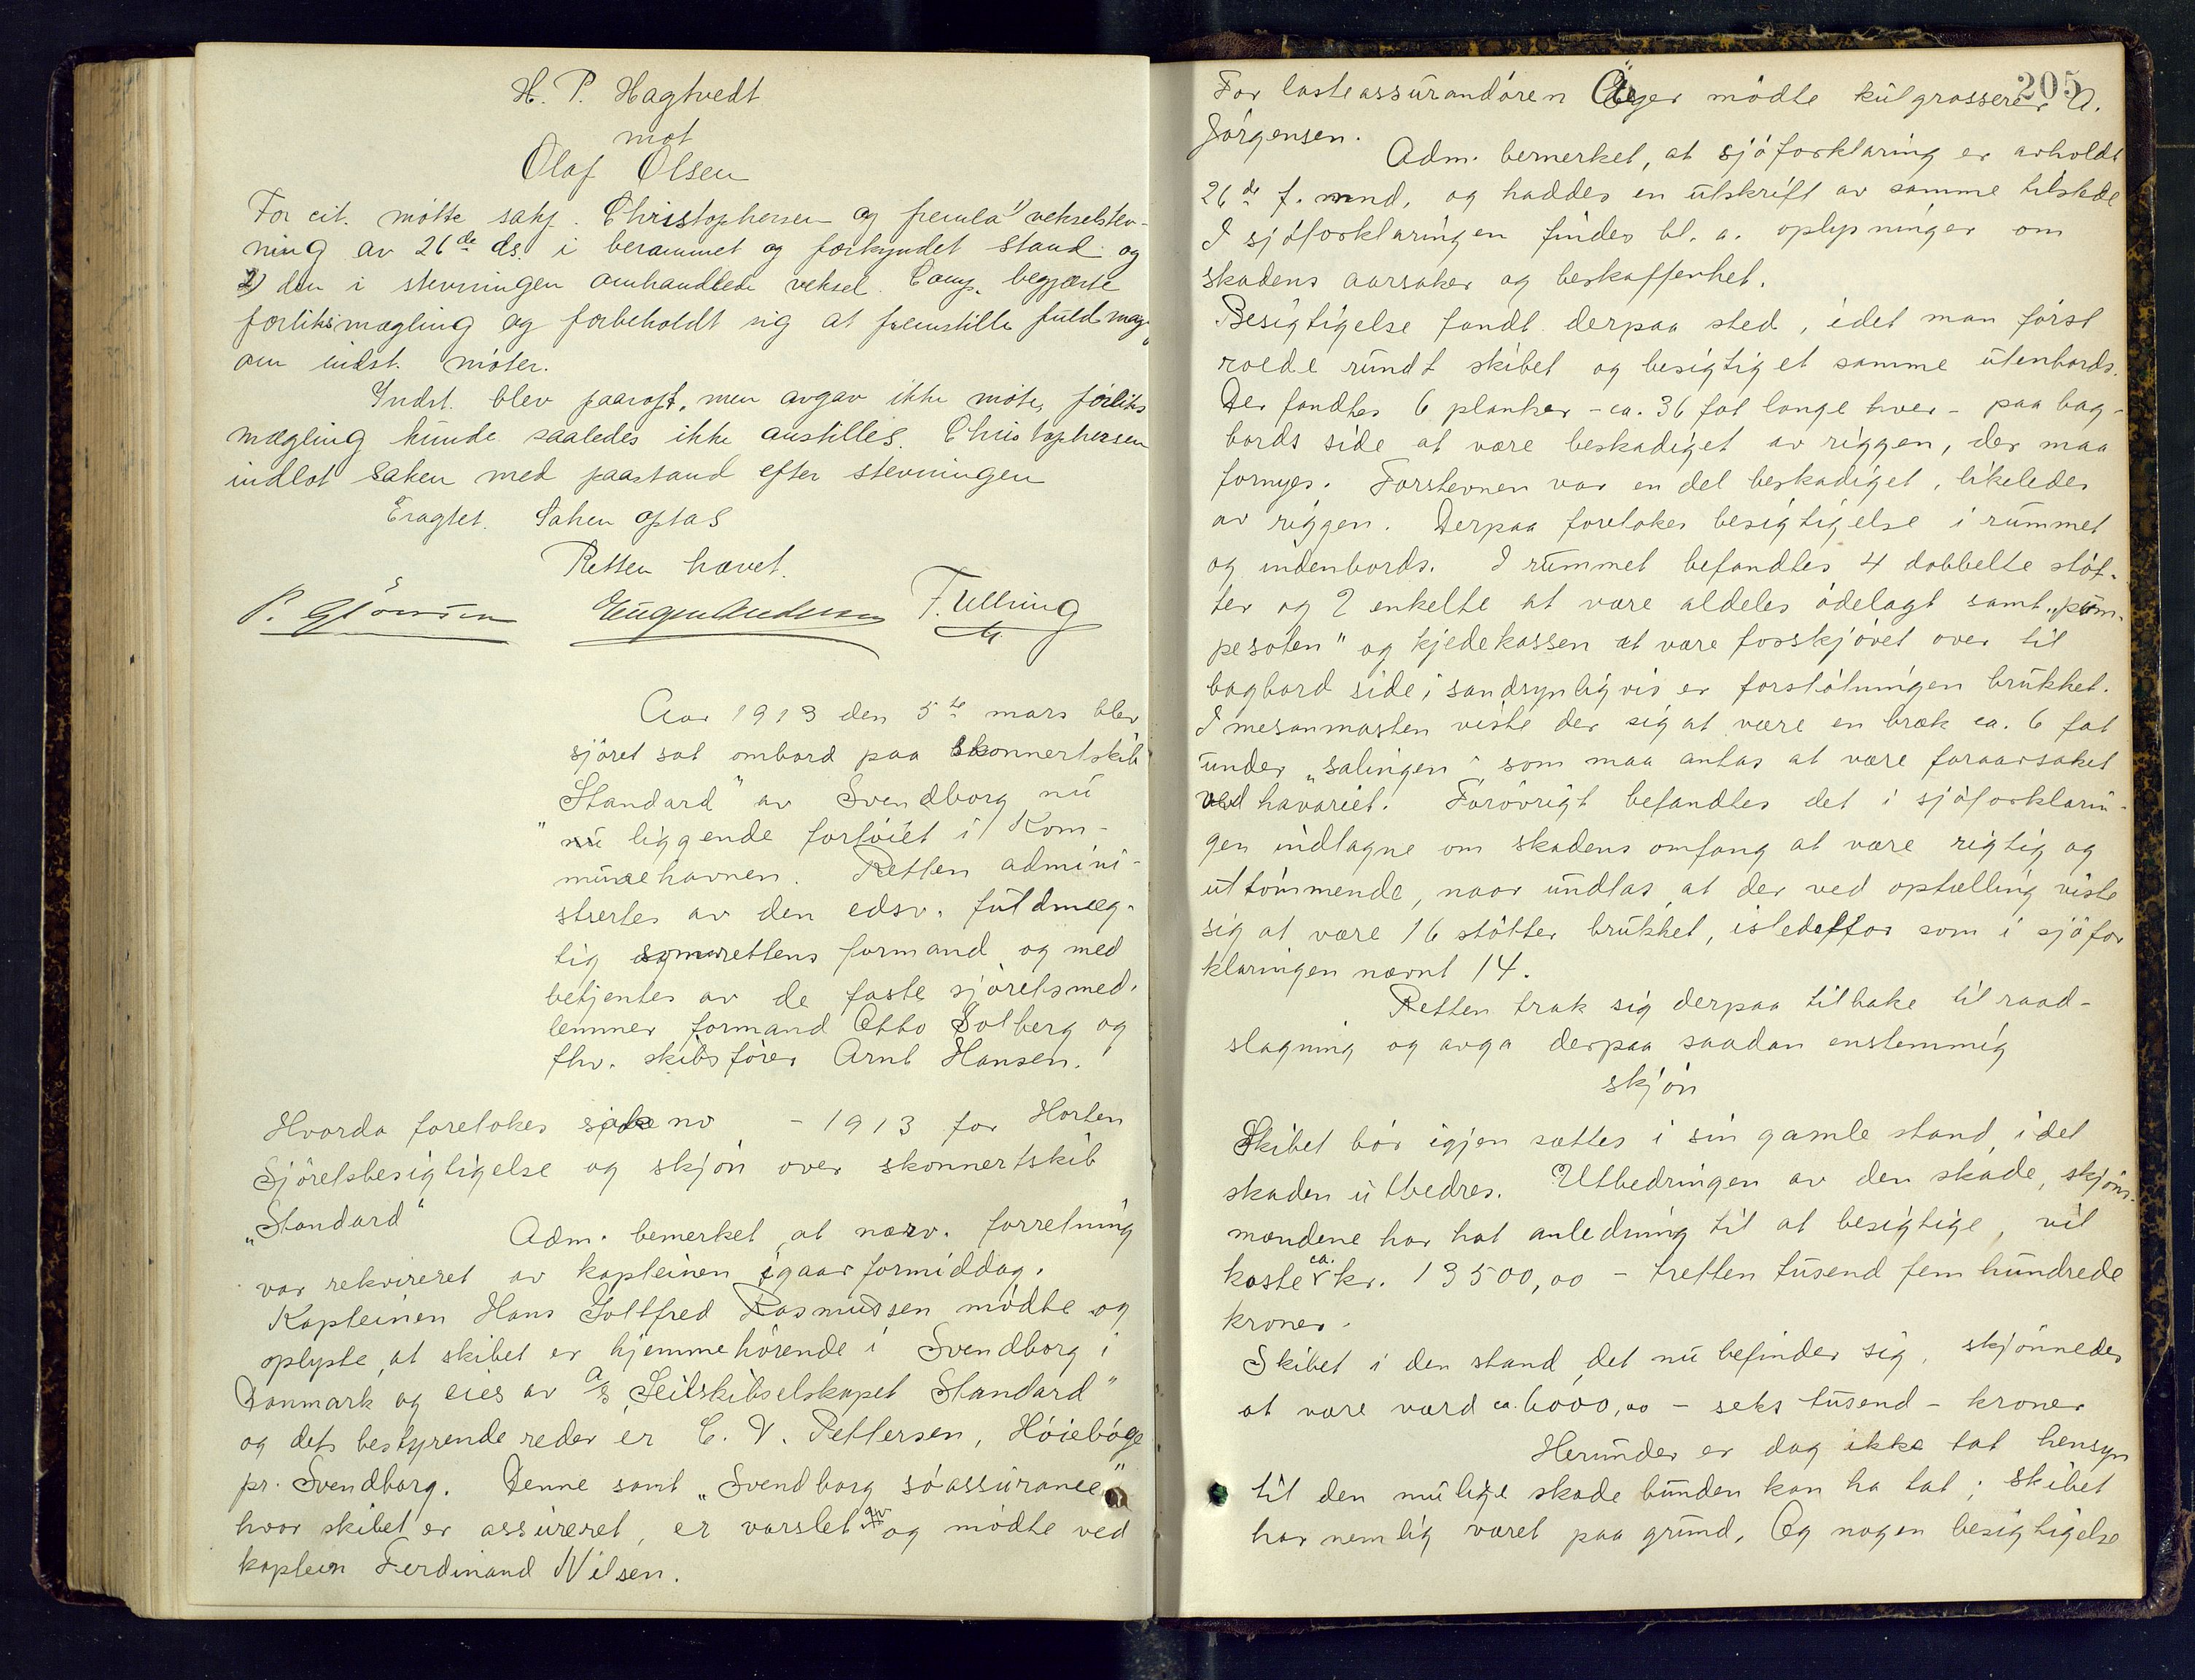 H. P. Hagtvedt
mot
Olaf Olsen
For cit. møtte sakf. Christophersen og fremla 1) vekselstev-
ning av 26de ds. i berammet og forkyndt stand og
2) den i stevningen omhandlede veksel. Comp. begjærte
forliksmægling og forbeholdt sig at fremstille fuldmag
om indst. møter.
Indst. blev paaropt, men avgav ikke møte, forliks
mægling kunde saaledes ikke anstilles. Christophersen
indlot saken med paastand efter stevningen
Eragtet. Saken optas
Retten hævet.
Eugen Andersen F. Ulling
Aar 1913 den 5te mars blev
sjøret sat ombord paa skonnertskib
"Standard" av Svendborg nu
nu liggende fortøiet i Kom-
munehavnen. Retten admini-
strertes av den edsv. fuldmæg-
tig som rettens formand og med
betjentes av de faste sjøretsmed-
lemmer formand Otto Solberg og
fhv. skibsfører Arnt Hansen.
Hvorda foretokes sak no - 1913 for Horten
Sjøretsbesigtigelse og skjøn over skonnertskib
"Standard"
Adm. bemerket, at nærv. forretning
var rekvireret av kapteinen igaar formiddag.
Kapteinen Hans Gottfred Rasmussen mødte og
oplyste, at skibet er hjemmehørende i Svendborg i
Danmark og eies av a/s "Seilskibselskapet Standard"
og dets bestyrende reder er C. V. Pettersen, Høiebøge
pr. Svendborg. Denne samt "Svendborg søassurance"
hvor skibet er assureret, er varslet og mødte ved
kaptein Ferdinand Nilsen.
205
For lasteassurandøren mødte kulgrosserer A.
Jørgensen.
Adm. bemerket, at sjøforklaring er avholdt
26de f. mnd. og haddes en utskrift av samme tilstede
I sjøforklaringen findes bl. a. oplysninger om
skadens aarsaker og beskaffenhet.
Besigtigelse fandt derpaa sted, idet man først
roede rundt skibet og besigtiget samme utenbords.
Der fandtes 6 planker - ca. 36 fot lange hver - paa bag-
bords side at være beskadiget av riggen, der maa
fornyes. Forstevnen var en del beskadiget, likeledes
av riggen. Derpaa foretokes besigtigelse i rummet
og indenbords. I rummet befandtes 4 dobbelte støt-
ter og 2 enkelte at være aldeles ødelagt samt "pum-
pesoten" og kjedekassen at være forskjøvet over til
bagbord side; sandsynligvis er forstøtningen brukket.
I mesanmasten viste der sig at være en bræk ca. 6 fot
under "salingen" som maa antas at være foraarsaket
ved havariet. Forøvrigt befandtes det i sjøforklarin-
gen indtagne om skadens omfang at være rigtig og
uttømmende, naar undtas, at der ved optælling viste
sig at være 16 støtter brukket, istedetfor som i sjøfor
klaringen nævnt 14.
Retten trak sig derpaa tilbake til raad-
slagning og avga derpaa saadan enstemmig
skjøn
Skibet bør igjen sættes i sin gamle stand, idet
skaden utbedres. Utbedringen av den skade, skjøns-
mændene har hat anledning til at besigtige, vil
koste ca. kr. 13500,00 - tretten tusend fem hundrede
kroner.
Skibet i den stand, det nu befinder sig, skjønnedes
at være værd ca. 6000,00 - seks tusend - kroner
Herunder er dog ikke tat hensyn
til den mulige skade bunden kan ha tat; skibet
har nemlig været paa grund. Og nogen besigtigelse